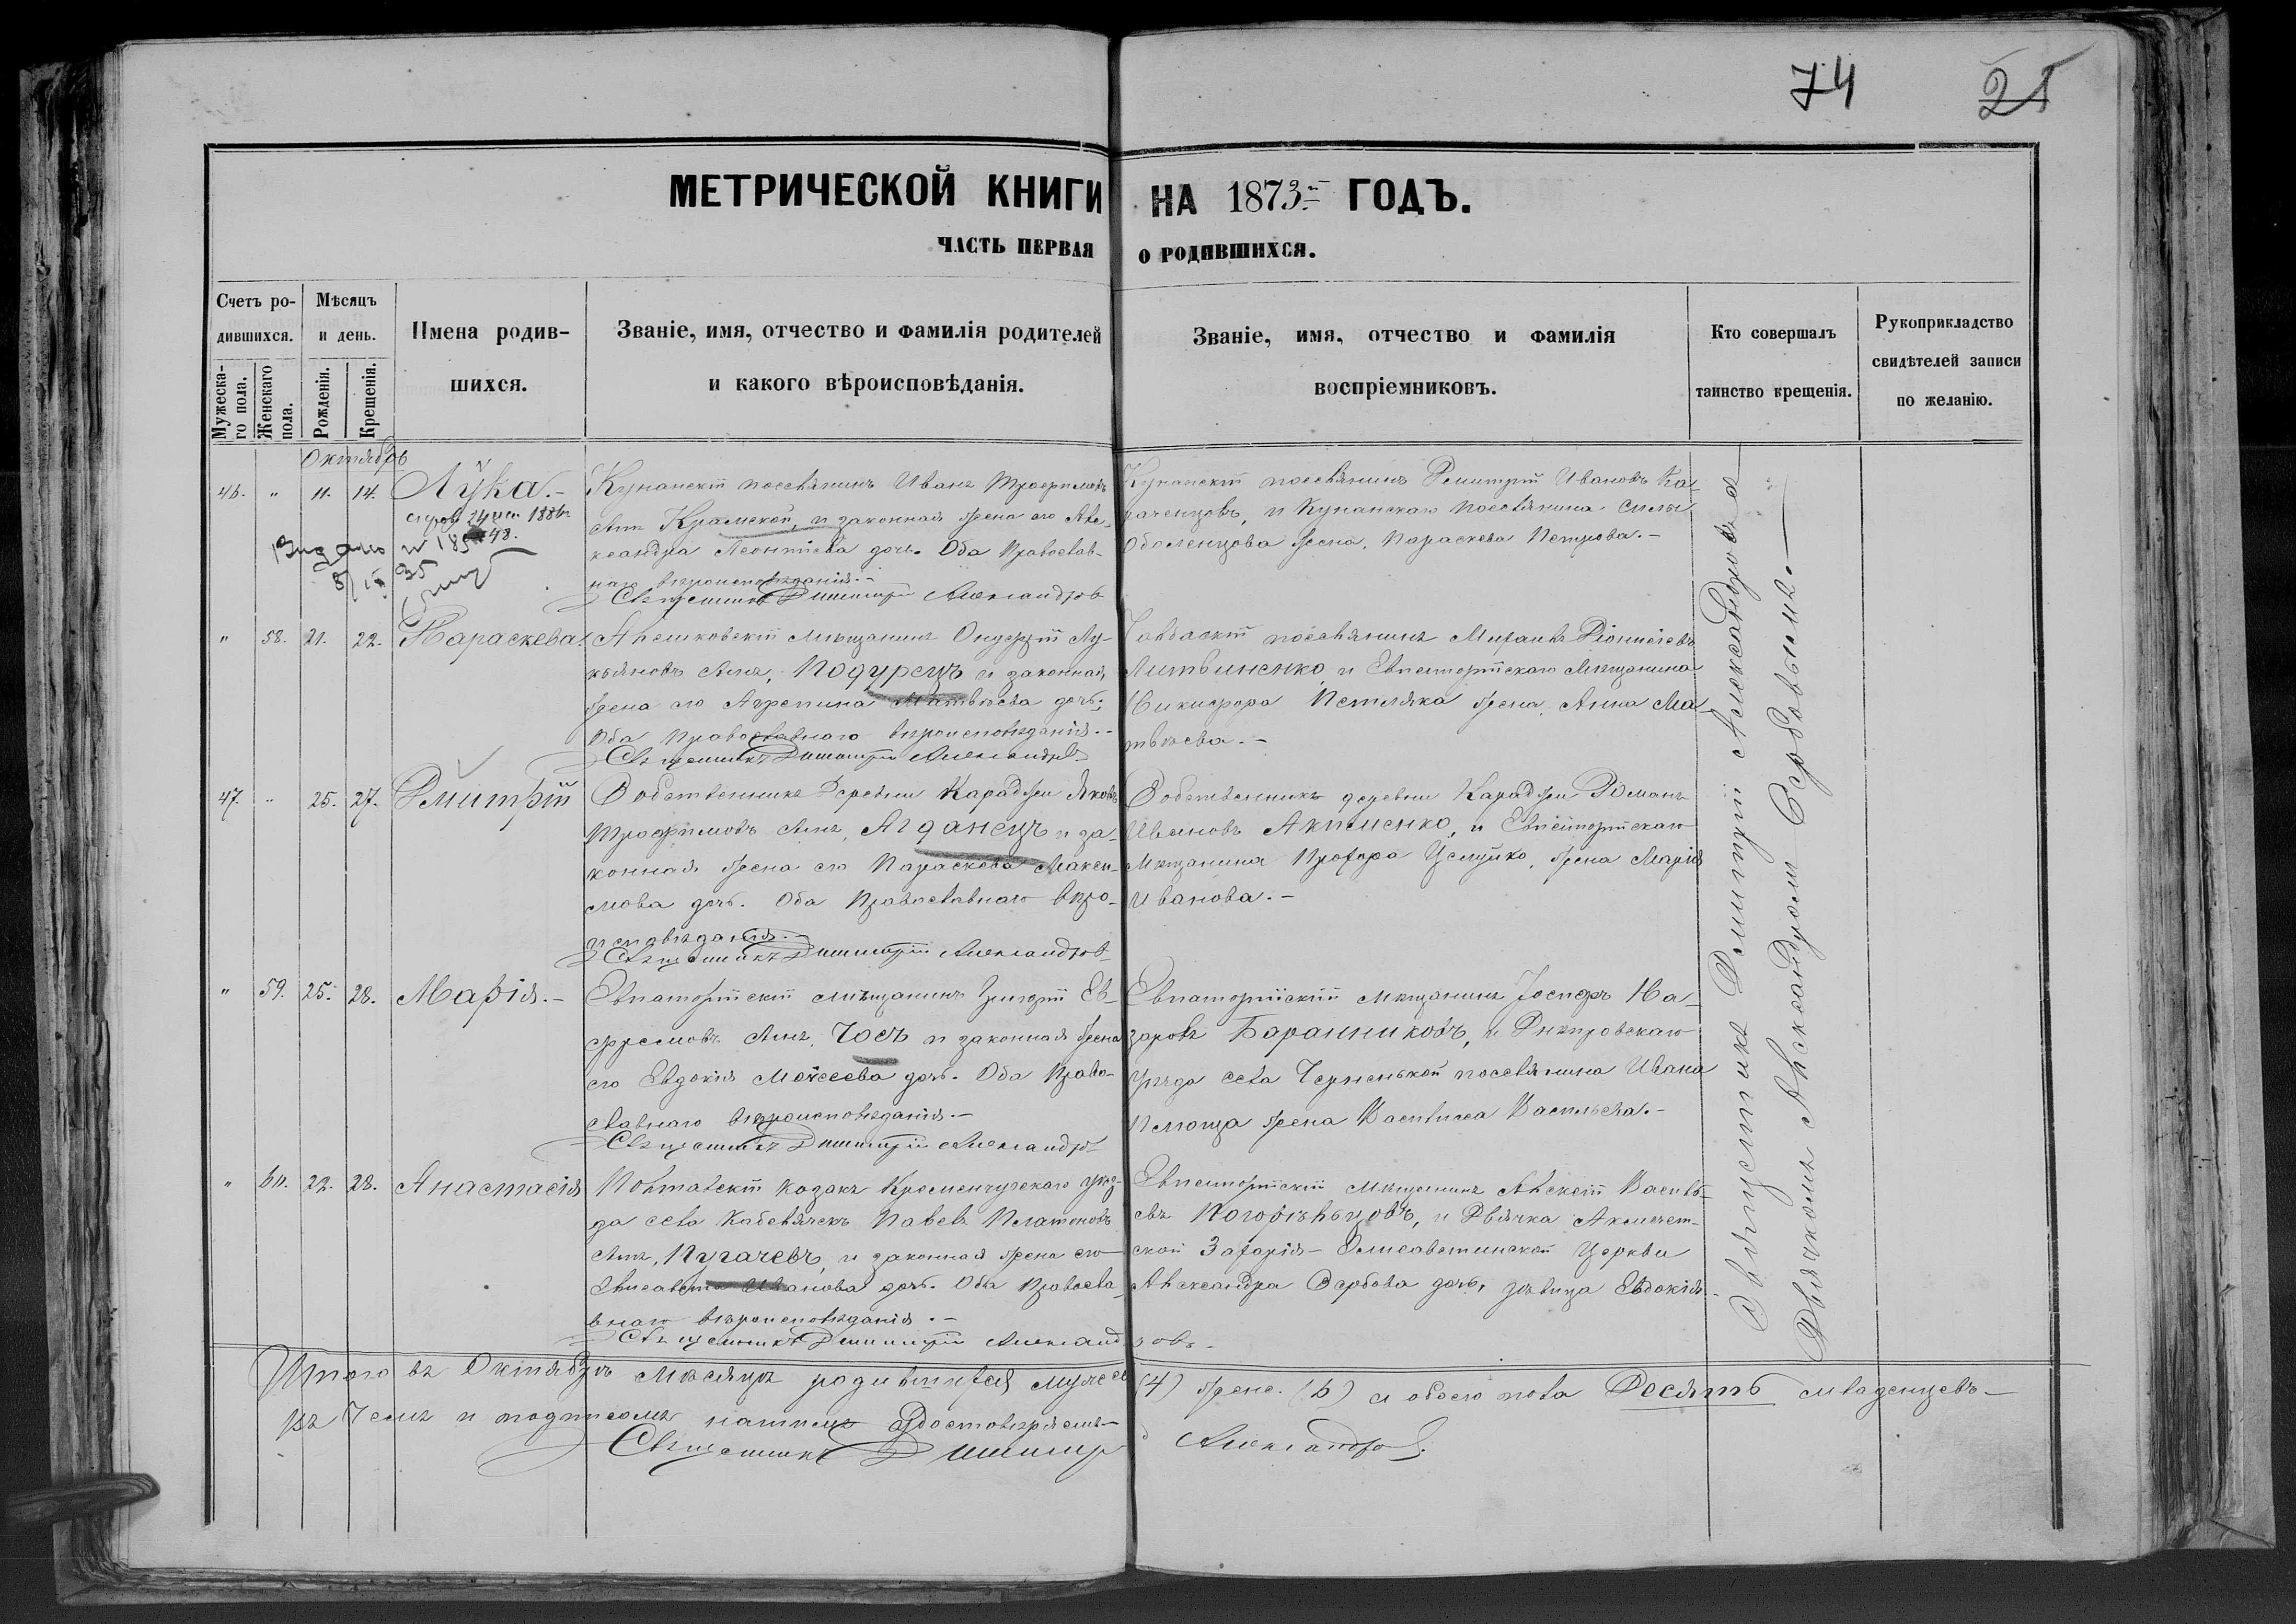 74 21
МЕТРИЧЕСКОЙ КНИГИ НА 1873й ГОДЪ.
ЧАСТЬ ПЕРВАЯ О РОДИВШИХСЯ.
Счетъ родившихся.
Мужескаго пола.
Женскаго пола.
Мѣсяцъ и день.
Рожденія.
Крещенія.
Имена родившихся.
Званіе, имя, отчество и фамилія родителей
и какого вѣроисповѣданія.
Званіе, имя, отчество и фамилія
воспріемниковъ.
Кто совершалъ
таинство крещенія.
Рукоприкладство
свидѣтелей записи
по желанію.
Октябрь
46. " 11. 14. Лука.-
Кунанскій поселянинъ Иванъ Трофимовъ
сынъ Крамской, и законная жена его Але-
ксандра Леонтіева дочь. Оба Православ-
наго вѣроисповѣданія.-
Священникъ Димитрій Александров
Кунанскій поселянинъ Димитрій Ивановъ Ка-
раченцовъ, и Кунанскаго поселянина Силы
Оболенцова жена, Параскева Петрова.-
" 58. 21. 22. Параскева.
Алешковскій мѣщанинъ Онуфрій Лу-
кьяновъ сынъ, Подурецъ и законная
жена его Агрепина Матвѣева дочь;
Оба православнаго вѣроисповѣданія.-
Священникъ Димитрій Александров
поселянинъ Діонисіевъ
Литвиненко, и Евпаторійскаго мѣщанина
Никифора Петляка жена, Анна Ма-
твѣева.-
47. " 25. 27. Дмитрій
Собственникъ деревни Караджи Яковъ
Трофимовъ сынъ, Агданецъ и за-
конная жена его Параскева Макси-
мова дочь. Оба Православнаго вѣро-
исповѣданія.-
Священникъ Димитрій Александров
Собственникъ деревни Караджи Романъ
Ивановъ Акименко, и Евпаторійскаго
мѣщанина Прохора жена Марія
Иванова.-
" 59. 25. 28. Марія.-
Евпаторійскій мѣщанинъ Григорій Еф-
фремовъ сынъ, Чосъ и законная жена
его Евдокія Моѵсеева дочь. Оба Право-
славнаго вѣроисповѣданія.-
Священникъ Димитрій Александров
Евпаторійскій мѣщанинъ Іосифъ На-
заровъ Баранниковъ, и Днѣпровскаго
уѣзда села Черненькой поселянина Ивана
жена Василиса Васильева.-
" 60. 22. 28. Анастасія
Полтавскій козакъ Кременчугскаго уѣз-
да села Кабелячекъ Павелъ Платоновъ
сынъ, Пугачевъ, и законная жена его
Елисавета Иванова дочь. Оба Правосла-
внаго вѣроисповѣданія.-
Священникъ Димитрій Александровъ.
Евпаторійскій мѣщанинъ Алексѣй Василь-
евъ Погорѣльцовъ, и Дьячка Акмечет-
ской Захаріе-Елисаветинской Церкви
Александра Сербова дочь, дѣвица Евдокія.
Священникъ Димитрій Александровъ съ
Дьячкомъ Александромъ Сербовымъ.-
Итого въ Октябрѣ мѣсяцѣ родившихся мужеск (4) женс. (6) а обоего пола Десять младенцевъ-
въ чемъ и подписомъ нашимъ Удостовѣряемъ-
Священникъ Димитрій Александров.